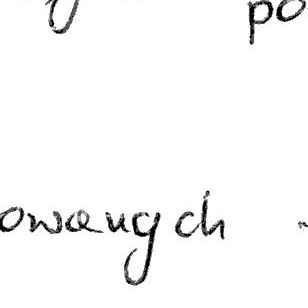 po
owanych -